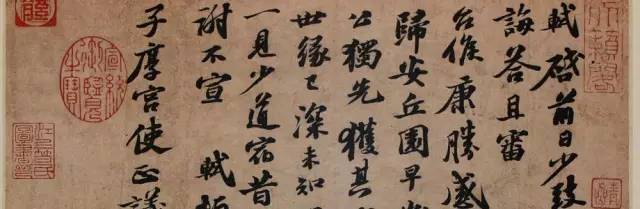 軾啓前日少致
誨答且審
台候康勝感
歸安丘園早
公獨先獲其
世緣已深未知
一見少道宿昔
謝不宣 軾頓
子厚宮使正議